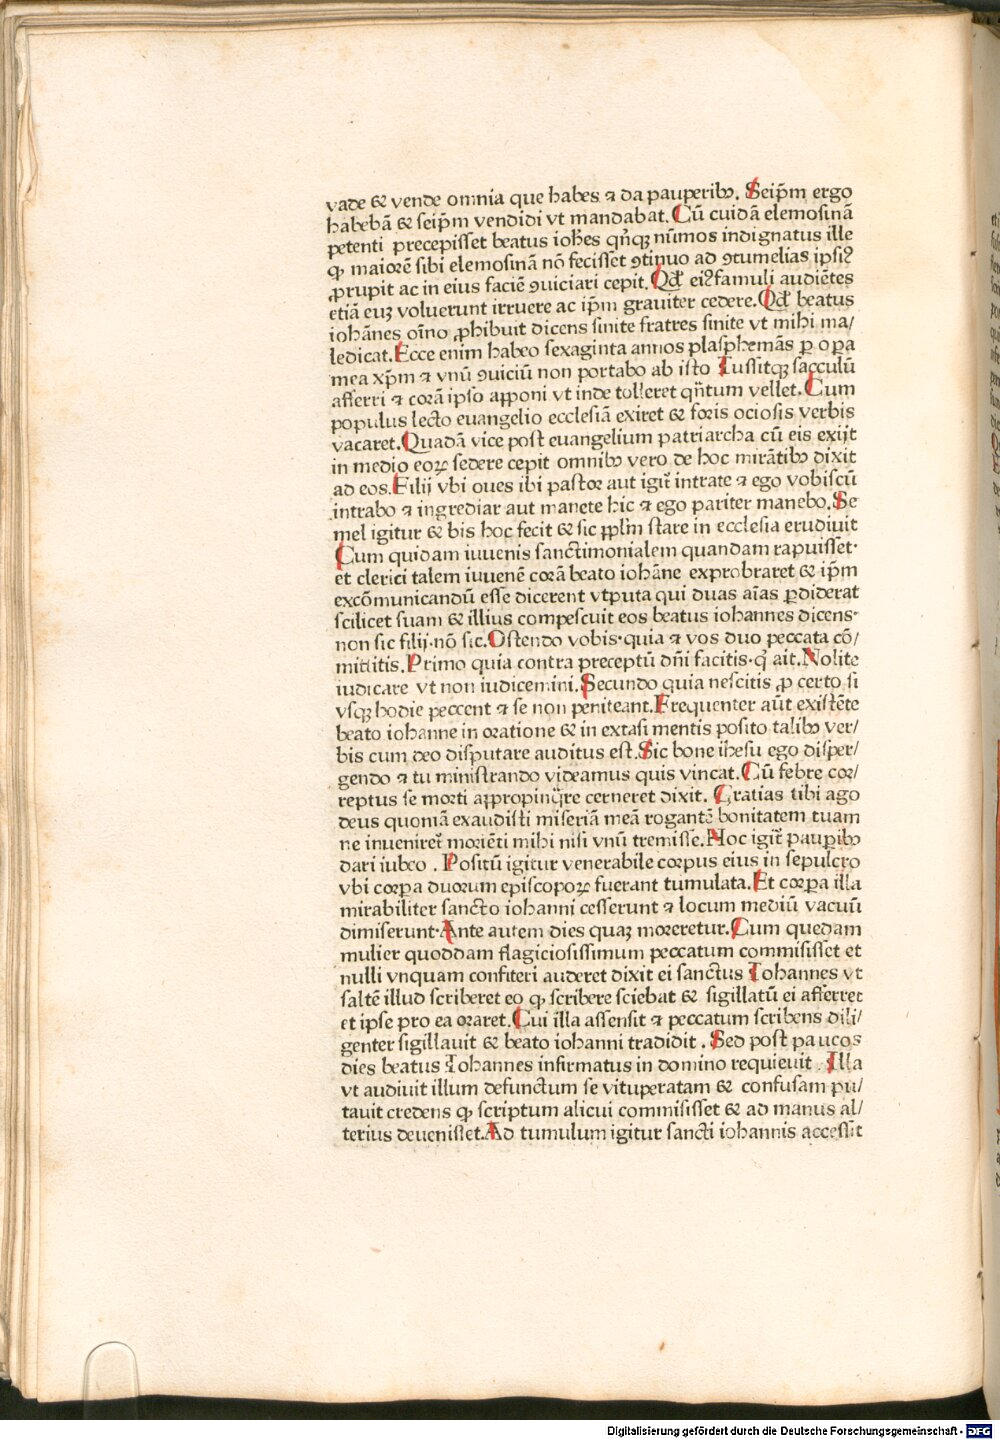 vade & vende omnia que habes ⁊ da pauperibꝫ. Seip̄m ergo
habebā & seip̄m vendidi vt mandabat. Cū cuidā elemosinā
petenti precepisset beatus ioh̄es qn̄qꝫ nūmos indignatus ille
ꝙ maiorē sibi elemosinā nō fecisset ꝯtinuo ad ꝯtumelias ipsiꝰ
ꝓrupit ac in eius faciē ꝯuiciari cepit. Qd̄ eiꝰ famuli audiētes
etiā euꝫ voluerunt irruere ac ip̄m grauiter cedere. Qd̄ beatus
iohānes oīno ꝓhibuit dicens sinite fratres sinite vt mihi ma/
ledicat. Ecce enim habeo sexaginta annos plasphemās ꝑ oꝑa
mea xp̄m ⁊ vnū ꝯuiciū non portabo ab isto Iussitqꝫ sacculū
afferri ⁊ corā ipso aꝓponi vt inde tolleret qn̄tum vellet. Cum
populus lecto euangelio ecclesiā exiret & foris ociosis verbis
vacaret. Quadā vice post euangelium patriarcha cū eis exijt
in medio eoꝝ sedere cepit omnibꝫ vero de hoc mirātibꝫ dixit
ad eos. Filij vbi oues ibi pastor aut igit̄ intrate ⁊ ego vobiscū
intrabo ⁊ ingrediar aut manete hic ⁊ ego pariter manebo. Se
mel igitur & bis hoc fecit & sic pp̄lm̄ stare in ecclesia erudiuit
Cum quidam iuuenis sanctimonialem quandam rapuisset·
et clerici talem iuuenē corā beato iohāne exprobraret & ip̄m
excōmunicandū esse dicerent vtputa qui duas aīas ꝑdiderat
scilicet suam & illius compescuit eos beatus iohannes dicens·
non sic filij·nō sic. Ostendo vobis·quia ⁊ vos duo peccata cō/
mittitis. Primo quia contra preceptū dn̄i facitis·q̄ ait. Nolite
iudicare vt non iudicemini. Secundo quia nescitis ꝓ certo si
vsqꝫ hodie peccent ⁊ se non peniteant. Frequenter aūt existēte
beato iohanne in oratione & in extasi mentis posito talibꝫ ver/
bis cum deo disputare auditus est. Sic bone ihesu ego disper/
gendo ⁊ tu ministrando videamus quis vincat. Cū febre cor/
reptus se morti aꝓpropinq̄re cerneret dixit. Gratias tibi ago
deus quoniā exaudisti miseriā meā rogantē bonitatem tuam
ne inueniret̄ moriēti mihi nisi vnū tremisse. Hoc igit̄ pauꝑibꝫ
dari iubeo . Positū igitur venerabile corpus eius in sepulcro
vbi corꝑa duorum episcopoꝝ fuerant tumulata. Et corꝑa illa
mirabiliter sancto iohanni cesserunt ⁊ locum mediū vacuū
dimiserunt· Ante autem dies quaꝫ moreretur. Cum quedam
mulier quoddam flagiciosissimum peccatum commisisset et
nulli vnquam confiteri auderet dixit ei sanctus Iohannes vt
saltē illud scriberet eo ꝙ scribere sciebat & sigillatū ei afferret
et ipse pro ea oraret. Cui illa assensit ⁊ peccatum scribens dili/
genter sigillauit & beato iohanni tradidit . Sed post paucos
dies beatus Iohannes infirmatus in domino requieuit . Illa
vt audiuit illum defunctum se vituperatam & confusam pu/
tauit credens ꝙ scriptum alicui commisisset & ad manus al/
terius deuenisset. Ad tumulum igitur sancti iohannis accessit
Digitalisierung gefördert durch die Deutsche Forschungsgemeinschaft - DFG